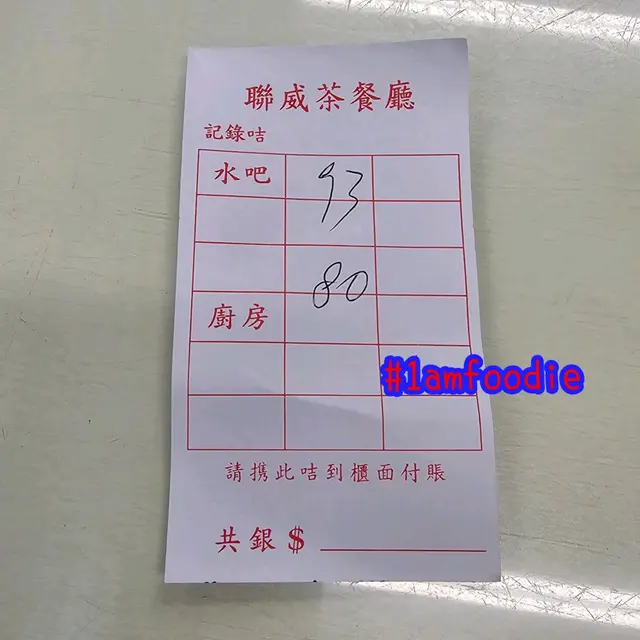 聯威茶餐廳
記錄咭
水吧
93
80
廚房
#1amfoodie
請携此咭到櫃面付賬
共銀 $